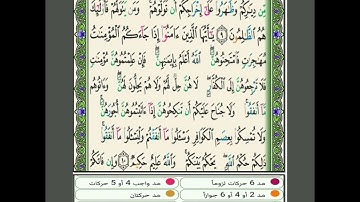 مِّن دِيَـٰرِكُمْ وَظَـٰهَرُوا۟ عَلَىٰٓ إِخْرَاجِكُمْ أَن تَوَلَّوْهُمْ ۚ وَمَن يَتَوَلَّهُمْ فَأُو۟لَـٰٓئِكَ
هُمُ ٱلظَّـٰلِمُونَ ٩ يَـٰٓأَيُّهَا ٱلَّذِينَ ءَامَنُوٓا۟ إِذَا جَآءَكُمُ ٱلْمُؤْمِنَـٰتُ
مُهَـٰجِرَٰتٍ فَٱمْتَحِنُوهُنَّ ۖ ٱللَّهُ أَعْلَمُ بِإِيمَـٰنِهِنَّ ۖ فَإِنْ عَلِمْتُمُوهُنَّ مُؤْمِنَـٰتٍ
فَلَا تَرْجِعُوهُنَّ إِلَى ٱلْكُفَّارِ ۖ لَا هُنَّ حِلٌّ لَّهُمْ وَلَا هُمْ يَحِلُّونَ لَهُنَّ ۖ وَءَاتُوهُم
مَّآ أَنفَقُوا۟ ۚ وَلَا جُنَاحَ عَلَيْكُمْ أَن تَنكِحُوهُنَّ إِذَآ ءَاتَيْتُمُوهُنَّ أُجُورَهُنَّ ۚ
وَلَا تُمْسِكُوا۟ بِعِصَمِ ٱلْكَوَافِرِ وَسْـَٔلُوا۟ مَآ أَنفَقْتُمْ وَلْيَسْـَٔلُوا۟ مَآ أَنفَقُوا۟ ۚ
ذَٰلِكُمْ حُكْمُ ٱللَّهِ ۖ يَحْكُمُ بَيْنَكُمْ ۚ وَٱللَّهُ عَلِيمٌ حَكِيمٌ ١٠ وَإِن فَاتَكُمْ
مد 6 حركات لزوماً
مد واجب 4 أو 5 حركات
مد 2 أو 4 أو 6 جوازاً
مد حركتان